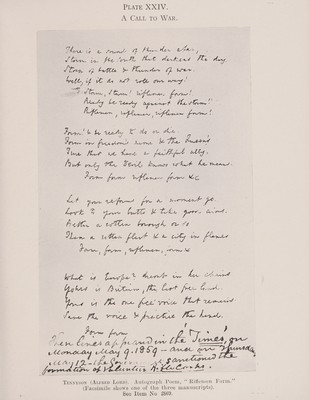 PLATE XXIV.
A CALL TO WAR.
There is a sound of thunder afar,
Storm in the South that darkens the day
Storm of battle & thunder of war.
Well, if it do not roll our way!
Storm, Storm! riflemen form!
Ready be ready against the storm!
Riflemen, riflemen, riflemen form!
Form! be ready to do or die
Form in freedom's name & the Queen's
True that we have a faithful ally.
But only the Devil knows what he means.
Form form riflemen form &c
Let your reforms for a moment go.
Look to your butts & take good aims.
Better a rotten borough or so
Than a rotten fleet & a city in flames
Form, form, riflemen, form &
What is Europe? in her chains
Yours is Britain, the last free land.
Yours is the one free voice that remains
Save the voice & practise the hand.
Form form
lines appeared in the 'Times', on
Monday May 9. 1859 — and on Thursday
May 12 the sanctioned the
formation of Volunteer Rifle Corps.
TENNYSON (ALFRED LORD). Autograph Poem, "Riflemen Form."
(Facsimile shows one of the three manuscripts)
See Item No. 2869